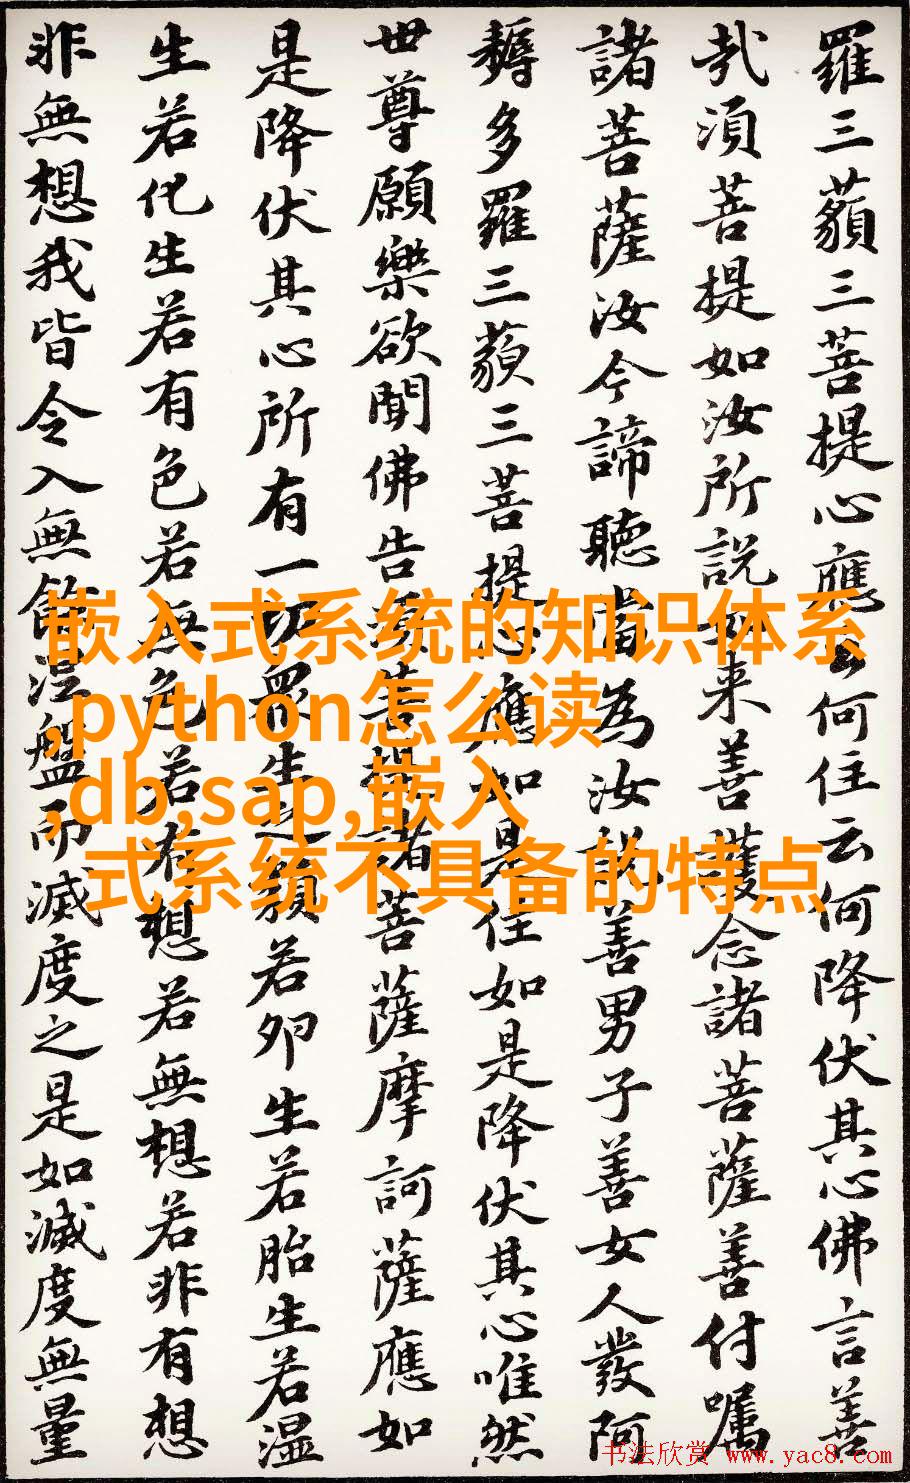 羅三藐三菩提心應云何住云何降伏其心佛言善
哉須菩提如汝所說如来善護念諸菩薩善付嘱
諸菩薩汝今諦聽當為汝說善男子善女人發阿
耨多羅三藐三菩提心應如是住如是降伏其心唯然
世尊願樂欲聞佛告須菩提諸菩薩摩訶薩應如
是降伏其心所有一切眾生之類若卵生若胎生若湿
生若化生若有色若無色若有想若無想若非有想
非無想我皆令入無餘涅盤而滅度之是如滅度無量
嵌入式系统的知识体系
,python怎么读
,db,sap,嵌入
式系统不具备的特点
书法欣赏 www.yac8.com